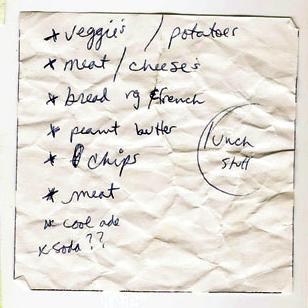 * veggie's / potatoes
* meat / cheeses
* bread rg & french
* peanut butter
* chips
* meat
* cool ade
x soda ??
lunch
stuff